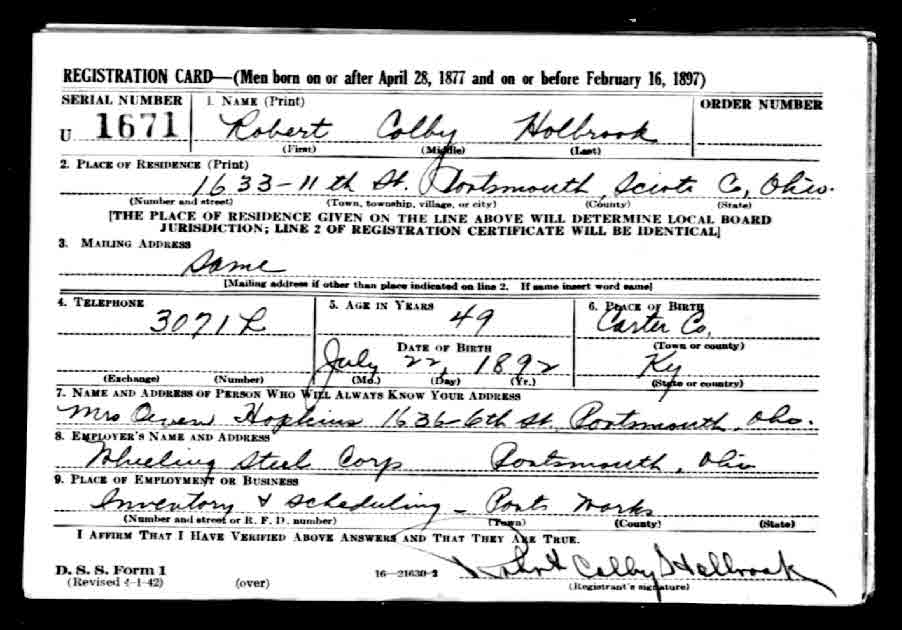 REGISTRATION CARD—(Men born on or after April 28, 1877 and on or before February 16, 1897)
SERIAL NUMBER 1. NAME (Print) ORDER NUMBER
U 1671 Robert Colby Holbrook
(First) (Middle) (Last)
2. PLACE OF RESIDENCE (Print)
1633-11th St. Portsmouth, Scioto Co, Ohio.
(Number and street) (Town, township, village, or city) (County) (State)
[THE PLACE OF RESIDENCE GIVEN ON THE LINE ABOVE WILL DETERMINE LOCAL BOARD
JURISDICTION; LINE 2 OF REGISTRATION CERTIFICATE WILL BE IDENTICAL]
3. MAILING ADDRESS
Same
[Mailing address if other than place indicated on line 2. If same insert word same]
4. TELEPHONE 5. AGE IN YEARS 6. PLACE OF BIRTH
3071 L 49 Carter Co,
DATE OF BIRTH (Town or county)
July 22, 1892 Ky
(Exchange) (Number) (Mo.) (Day) (Yr.) (State or country)
7. NAME AND ADDRESS OF PERSON WHO WILL ALWAYS KNOW YOUR ADDRESS
Mrs Owen Hopkins 1636-6th St. Portsmouth, Oho.
8. EMPLOYER'S NAME AND ADDRESS
Wheeling Steel Corp Portsmouth, Ohio
9. PLACE OF EMPLOYMENT OR BUSINESS
Inventory & Scheduling - Ports Works
(Number and street or R. F. D. number) (Town) (County) (State)
I AFFIRM THAT I HAVE VERIFIED ABOVE ANSWERS AND THAT THEY ARE TRUE.
D. S. S. Form 1
(Revised 4-1-42) (over) 16—21630-2 Robert Colby Holbrook
(Registrant's signature)